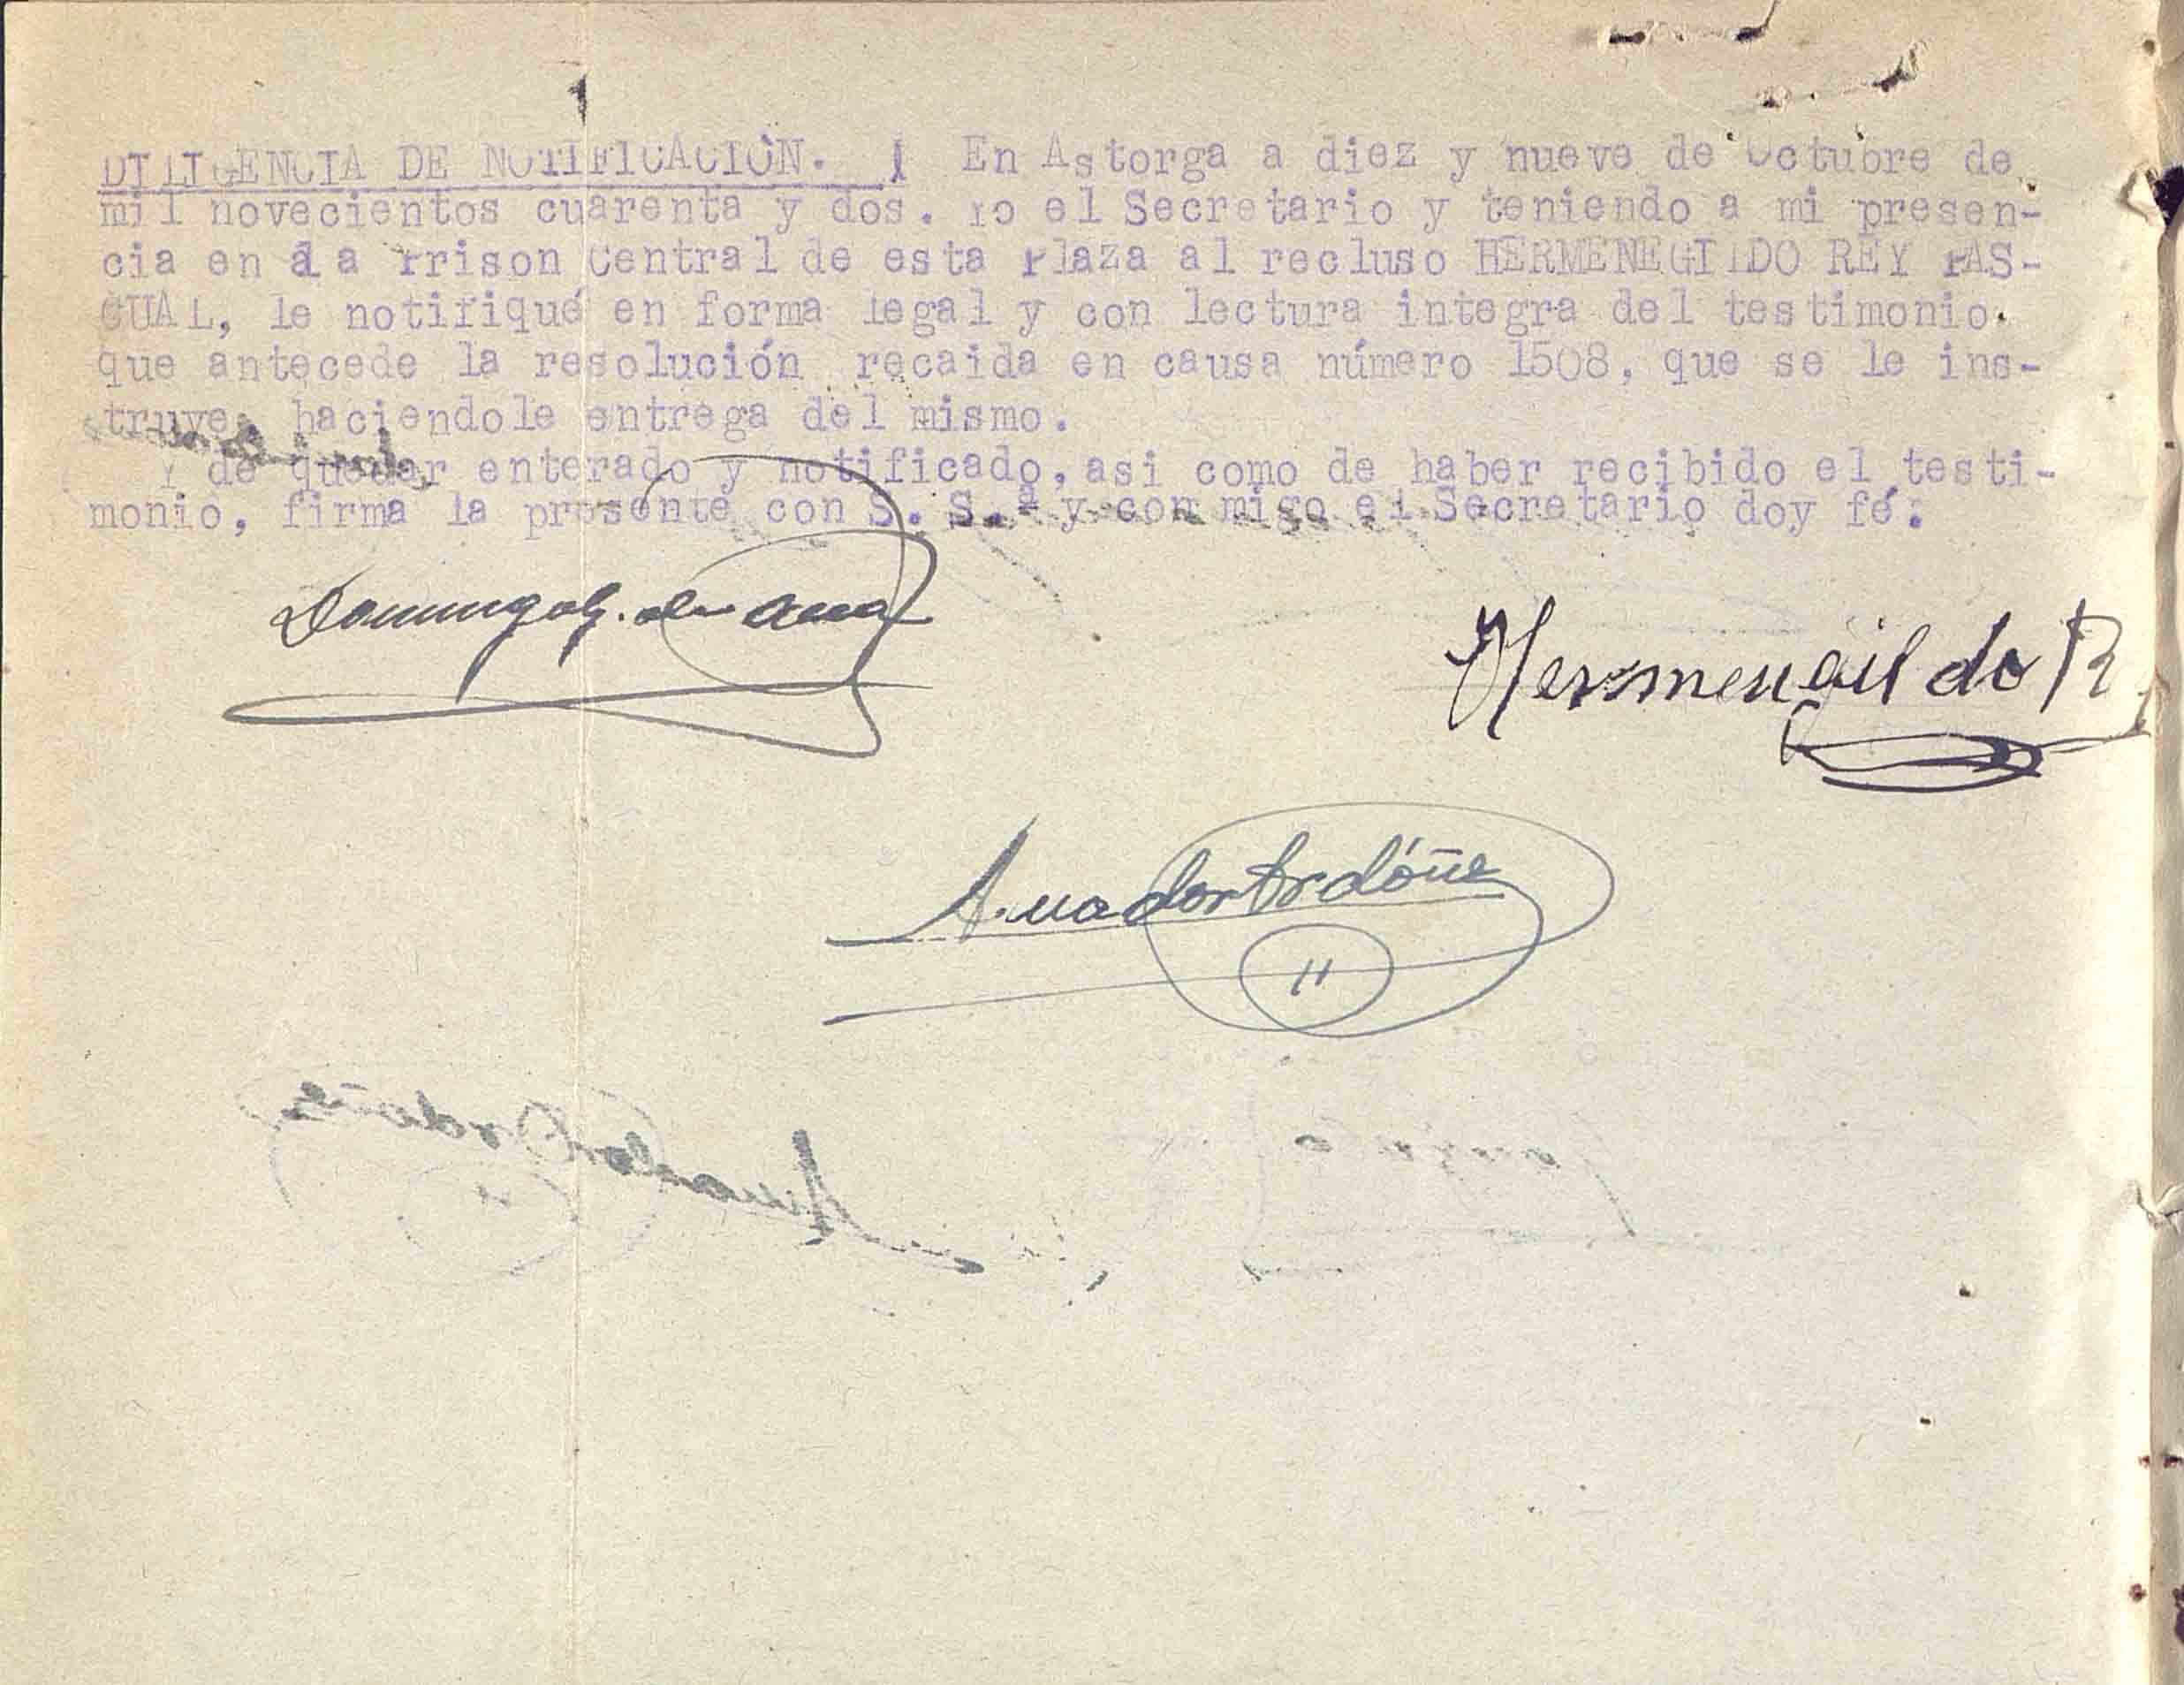 DILIGENCIA DE NOTIFICACIÓN. En Astorga a diez y nueve de Octubre de
mil novecientos cuarenta y dos. Yo el Secretario y teniendo a mi presen-
cia en la Prison Central de esta Plaza al recluso HERMENEGILDO REY PAS-
CUAL, le notifiqué en forma legal y con lectura integra del testimonio
que antecede la resolución recaida en causa número 1508, que se le ins-
truye, haciendole entrega del mismo.
Y de quedar enterado y notificado, asi como de haber recibido el testi-
monio, firma la presente con S. S.ª y con migo el Secretario doy fé.
Domingo G. de
Hermenegildo R
Amador Ordóñe